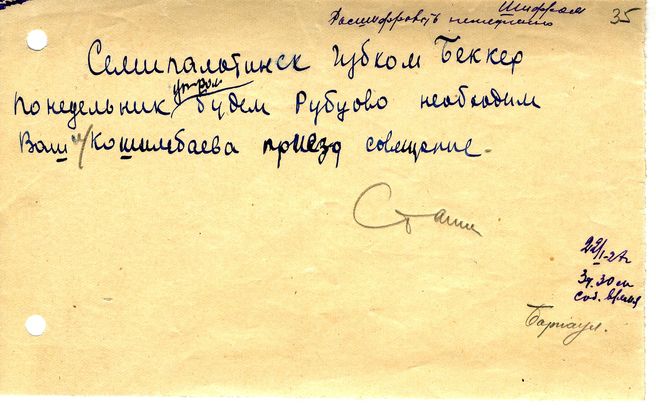 Шифром 35
Расшифровать немедленно
Семипалатинск Губком Беккер
понедельник утром будем Рубцово необходим
Ваш и Кошимбаева приезд совещание.
Сталин
22/I-28 г
3 ч. 30 м
Барнаул.